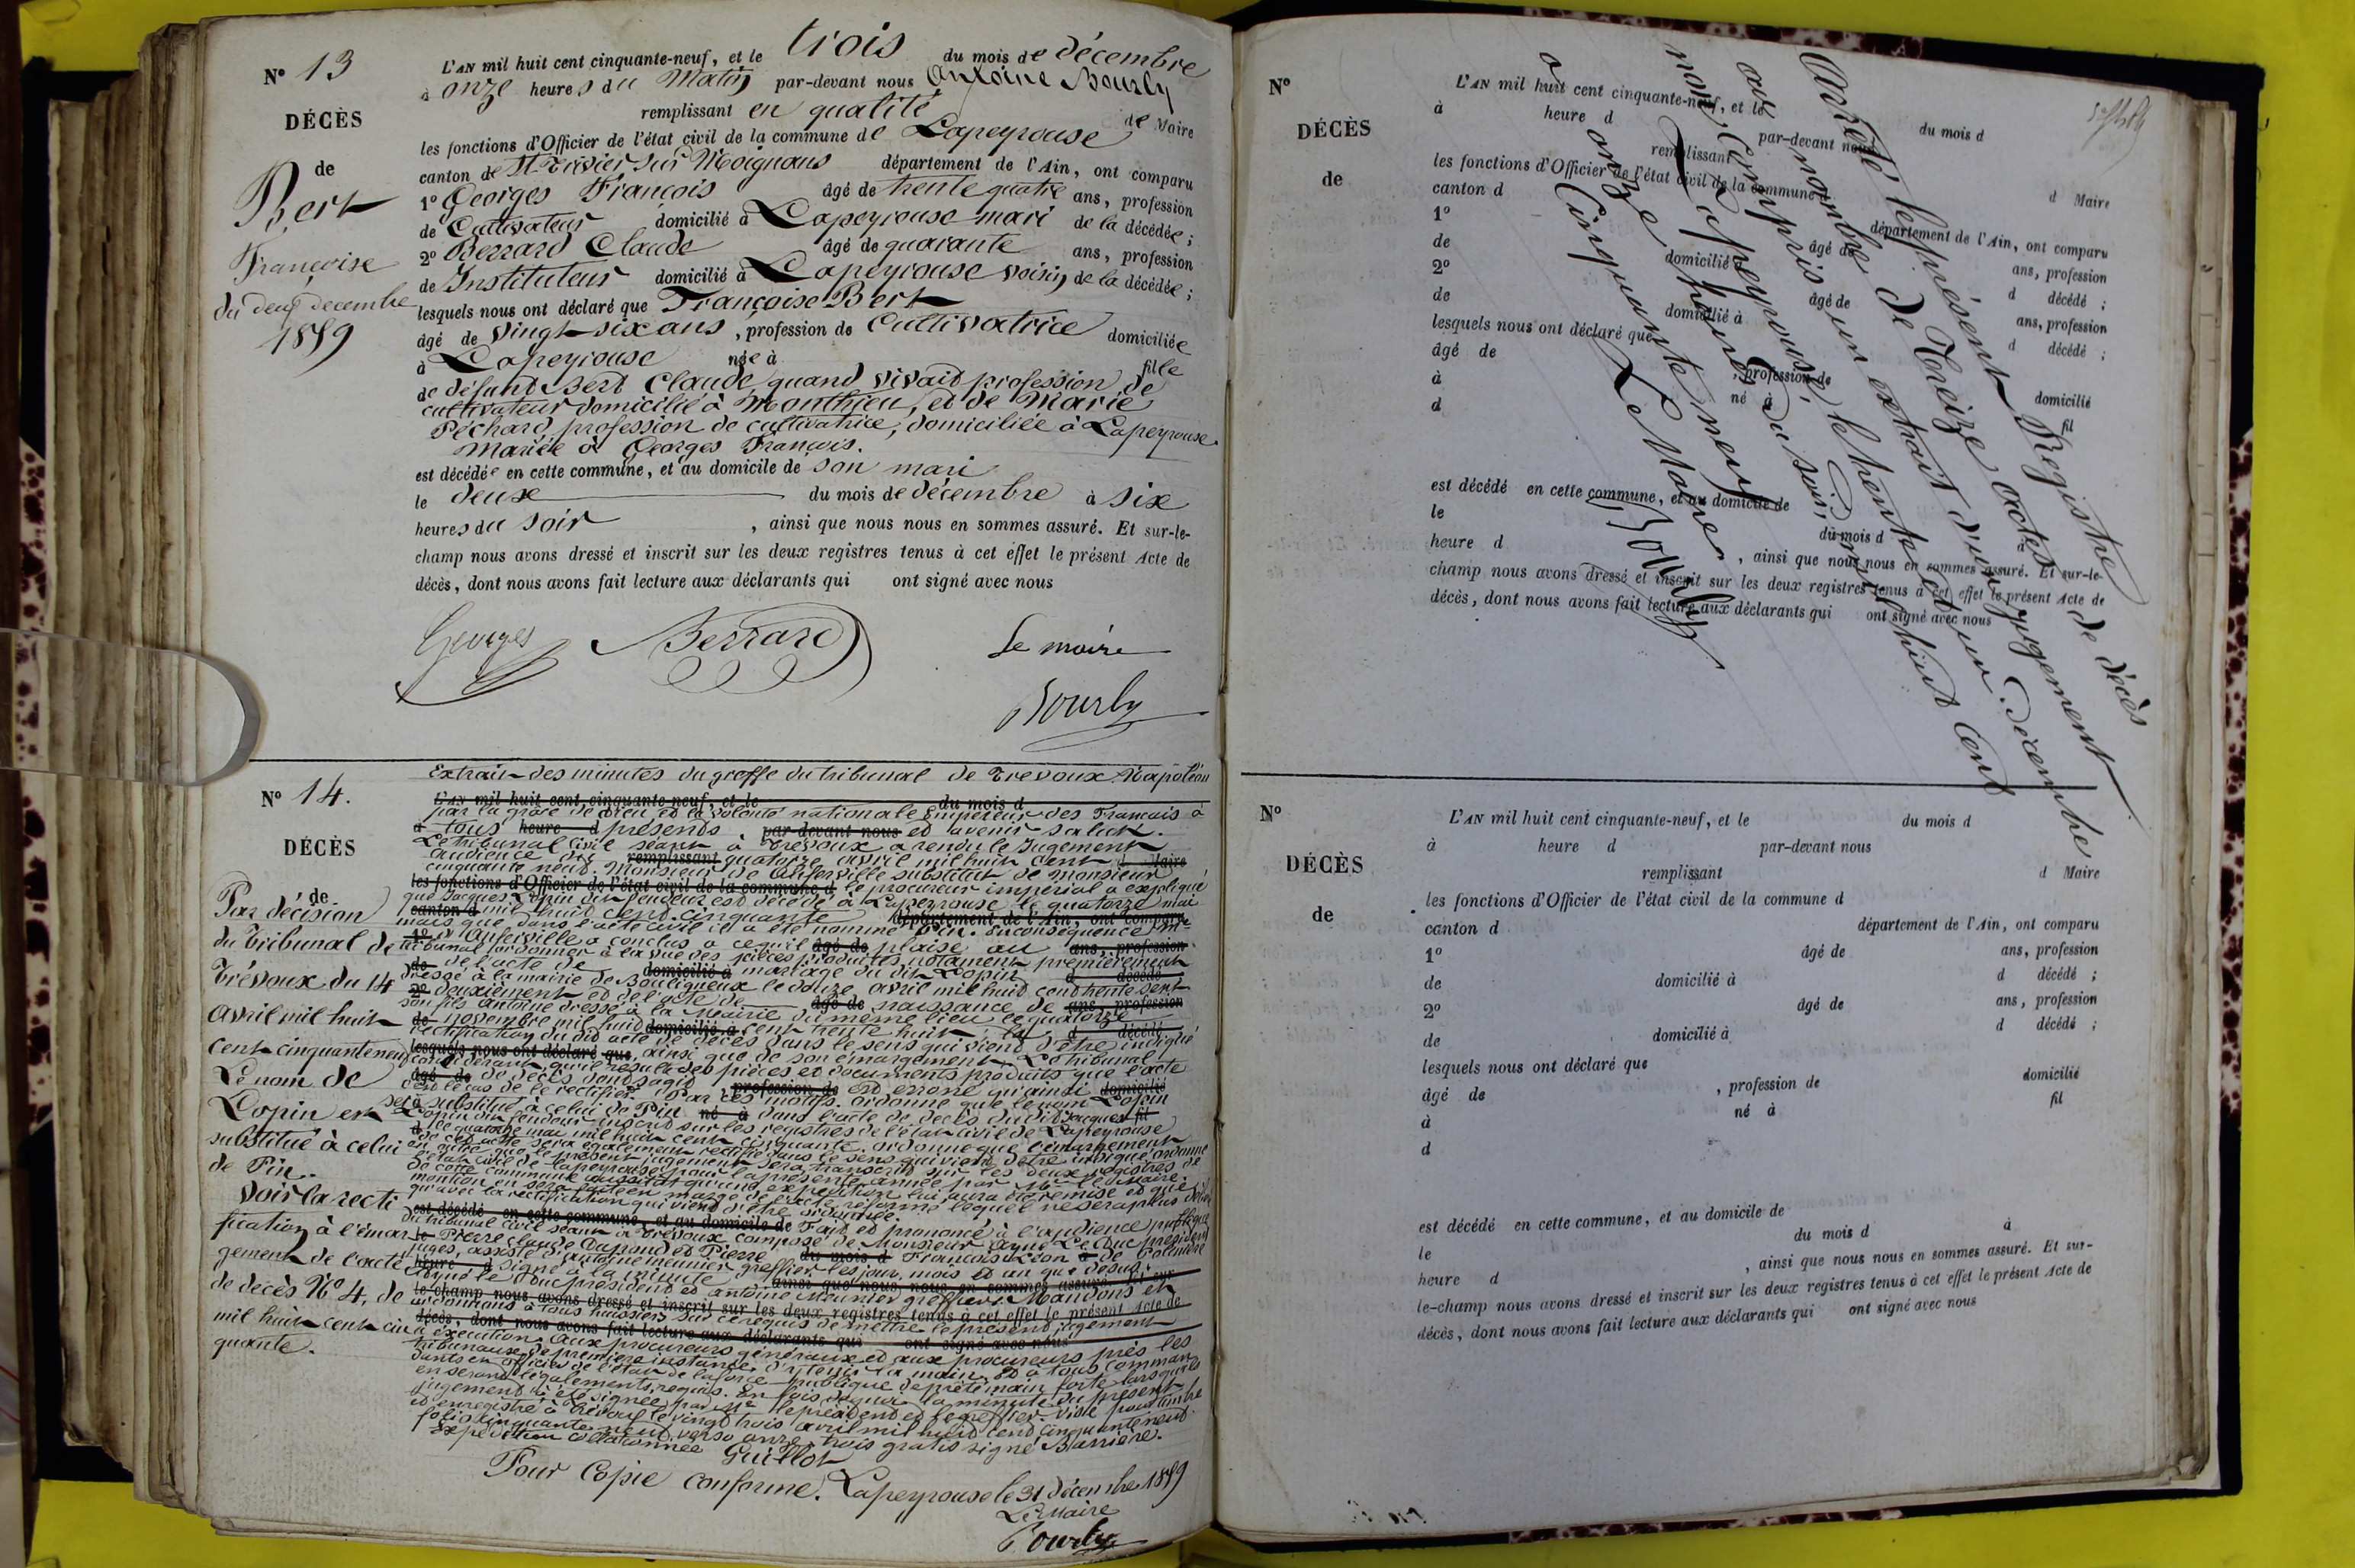 N° 13
DÉCÈS
de
Bert
Françoise
du deux decembre
1859
L'AN mil huit cent cinquante-neuf, et le trois du mois de décembre
à onze heures du Matin par-devant nous Antoine Bourly
remplissant en qualité de Maire
les fonctions d'Officier de l'état civil de la commune de Lapeyrouse
canton de St Trivier sur Moignans département de l'Ain, ont comparu
1° Georges François âgé de trente quatre ans, profession
de Cultivateur domicilié à Lapeyrouse mari de la décédée;
2° Berrard Claude âgé de quarante ans, profession
de Instituteur domicilié à Lapeyrouse voisin de la décédée;
lesquels nous ont déclaré que Françoise Bert
âgé de vingt-six ans, profession de Cultivatrice domiciliée
à Lapeyrouse née à fille
de défunt Bert Claude quand vivait profession de
cultivateur domicilié à Monthieu, et de Marie
Péchard profession de cultivatrice, domiciliée à Lapeyrouse.
Mariée à Georges François.
est décédée en cette commune, et au domicile de son mari
le deux du mois de décembre à six
heures du soir, ainsi que nous nous en sommes assuré. Et sur-le-
champ nous avons dressé et inscrit sur les deux registres tenus à cet effet le présent Acte de
décès, dont nous avons fait lecture aux déclarants qui ont signé avec nous
Georges Berrard Le maire
Bourly
N° 14.
DÉCÈS
de
Par décision
du Tribunal de
Trévoux du 14
avril mil huit
cent cinquante neuf
Le nom de
Lopin est
substitué à celui
de Pin.
Voir la recti
fication à l'émar
gement de l'acte
de décès N° 4, de
mil huit cent cin
quante.
Extrait des minutes du greffe du tribunal de Trevoux. Napoléon
L'AN mil huit cent cinquante-neuf, et le du mois d
par la grâce de Dieu et la volonté nationale Empereur des Français à
tous présents et avenir salut.
Le tribunal Civil séant à Trevoux a rendu le Jugement
audience du quatorze avril mil huit cent
cinquante neuf. Monsieur de Anferville substitut de Monsieur
le procureur impérial a expliqué
que Jacques Lopin dit Fendeur est décédé à Lapeyrouse le quatorze mai
mil huit cent cinquante
mais que dans l'acte civil il a été nommé Pin. En conséquence Mr
Anferville a conclus a ce qu'il plaise au
tribunal ordonner à la vue des pièces produites notament premièrement
de l'acte de mariage du dit Lopin
dressé à la mairie de Bouligneux le douze avril mil huit cent trente sept
deuxièment et de l'acte de naissance de
son fils Antoine dressé à la Mairie du même lieu le quatorze
novembre mil huit cent trente huit, la
rectification du dit acte de décès dans le sens qui vient d'être indiqué
ainsi que de son émargement. Le tribunal
considérant qu'il resulte des pièces et documents produits que l'acte
de décès dont s'agit est erroné qu'ainsi
c'est le cas de le rectifier. Par ces motifs. Ordonne que le nom Lopin
sera substitué à celui de Pin dans l'acte de décès dudit Jacques
Lopin dit Fendeur inscrit sur les registres de l'état civil de Lapeyrouse
le quatorze mai mil huit cent cinquante. Ordonne que l'émargement
de cet acte sera également rectifié dans le sens qui vient d'être indiqué ordonne
en outre que le présent jugement sera transcrit sur les deux registres de
l'état civil de Lapeyrouse pour la présente année par Mr le Maire
de cette commune aussitôt qu'une expédition lui aura été remise et que
mention en sera faite en marge de l'acte réformé lequel ne sera plus délivré
qu'avec la rectification qui vient d'être ordonnée.
Fait et prononcé à l'audience publique
du tribunal civil séant à Trévoux composé de Monsieur Ayné Le Duc président
Pierre Claude Dupond et Pierre François Léon de Polinière
juges, assisté d'Antoine Meunier greffier les jour, mois et an que dessus.
signé à la minute
Ayné le Duc président et Antoine Meunier greffier. Mandons et
ordonnons à tous huissiers sur ce requis de mettre le présent jugement
à exécution. Aux procureurs généraux et aux procureurs près les
tribunaux de première instance d'y tenir la main. Et à tous comman
dants et officiers de la force publique de prêter main forte lorsqu'ils
en seront légalements requis. En fois de quoi la minute du présent
jugement a été signée par Mr le président et le greffier. Visé pour timbre
et enregistré à Trévoux le vingt trois avril mil huit cent cinquante neuf.
folio cinquante neuf verso onze trois gratis signé Barrière.
Expédition collationnée Guillot
Pour Copie conforme. Lapeyrouse le 31 décembre 1859
Le Maire
Bourly
N°
DÉCÈS
de
L'AN mil huit cent cinquante-neuf, et le du mois d
à heure d par-devant nous
remplissant d Maire
les fonctions d'Officier de l'état civil de la commune d
canton d département de l'Ain, ont comparu
1° âgé de ans, profession
de domicilié à d décédé;
2° âgé de ans, profession
de domicilié à d décédé;
lesquels nous ont déclaré que
âgé de, profession de domicilié
à né à fil
d
est décédé en cette commune, et au domicile de
le du mois d à
heure d, ainsi que nous nous en sommes assuré. Et sur-le-
champ nous avons dressé et inscrit sur les deux registres tenus à cet effet le présent Acte de
décès, dont nous avons fait lecture aux déclarants qui ont signé avec nous
Arrêté le présent Registre de décès
au nombre de Treize actes
non compris un extrait d'un jugement
à Lapeyrouse, le trente et un décembre
à onze heures du soir mil huit cent
Cinquante neuf
Le Maire
Bourly
N°
DÉCÈS
de
L'AN mil huit cent cinquante-neuf, et le du mois d
à heure d par-devant nous
remplissant d Maire
les fonctions d'Officier de l'état civil de la commune d
canton d département de l'Ain, ont comparu
1° âgé de ans, profession
de domicilié à d décédé;
2° âgé de ans, profession
de domicilié à d décédé;
lesquels nous ont déclaré que
âgé de, profession de domicilié
à né à fil
d
est décédé en cette commune, et au domicile de
le du mois d à
heure d, ainsi que nous nous en sommes assuré. Et sur-
le-champ nous avons dressé et inscrit sur les deux registres tenus à cet effet le présent Acte de
décès, dont nous avons fait lecture aux déclarants qui ont signé avec nous